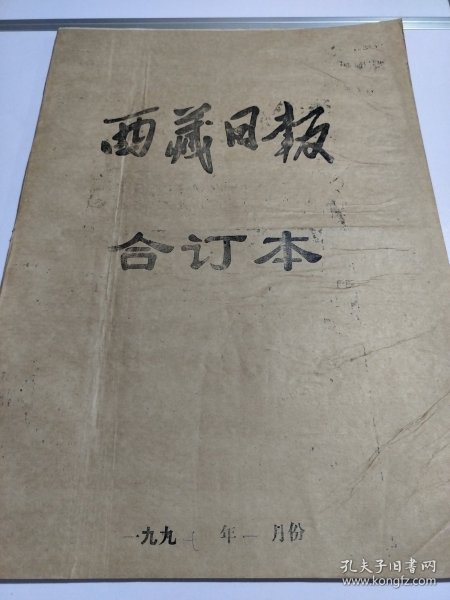 西藏日报
合订本
一九九七年一月份
孔夫子旧书网
www.kongfz.com